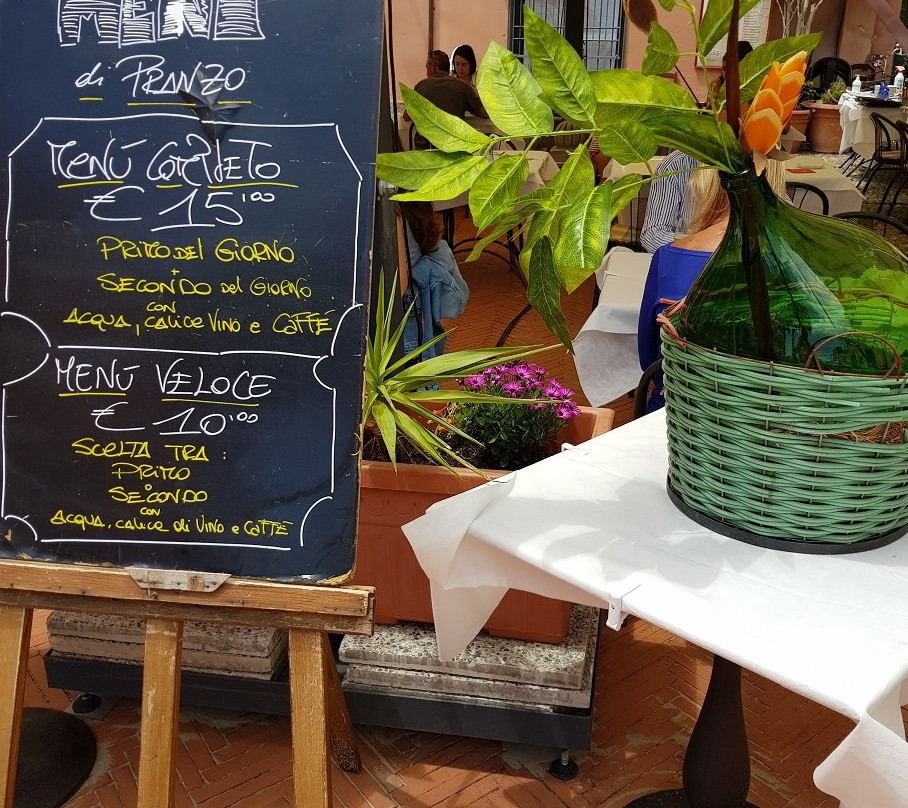 MENÙ
di PRANZO
MENÙ COMPLETO
€ 15,00
PRIMO DEL GIORNO
+
SECONDO del GIORNO
CON
ACQUA, CALICE VINO e CAFFÈ
MENÙ VELOCE
€ 10,00
SCELTA TRA :
PRIMO
o
SECONDO
CON
ACQUA, CALICE di VINO e CAFFÈ